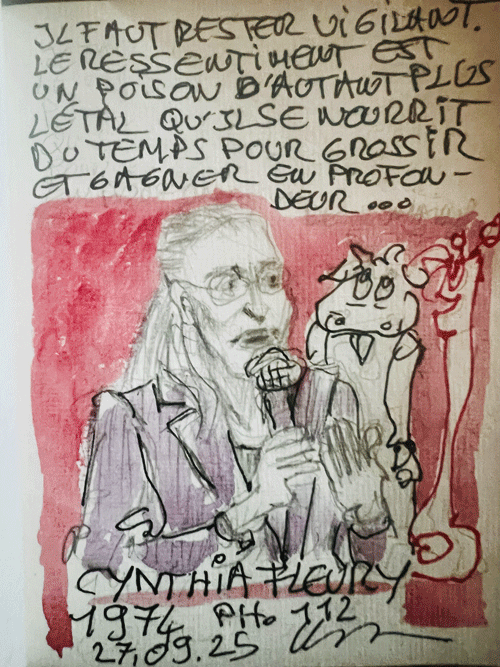 IL FAUT RESTER VIGILANT.
LE RESSENTIMENT EST
UN POISON D'AUTANT PLUS
LÉTAL QU'IL SE NOURRIT
DU TEMPS POUR GROSSIR
ET GAGNER EN PROFON-
DEUR...
CYNTHIA FLEURY
1974 PHO 112
27.09.25